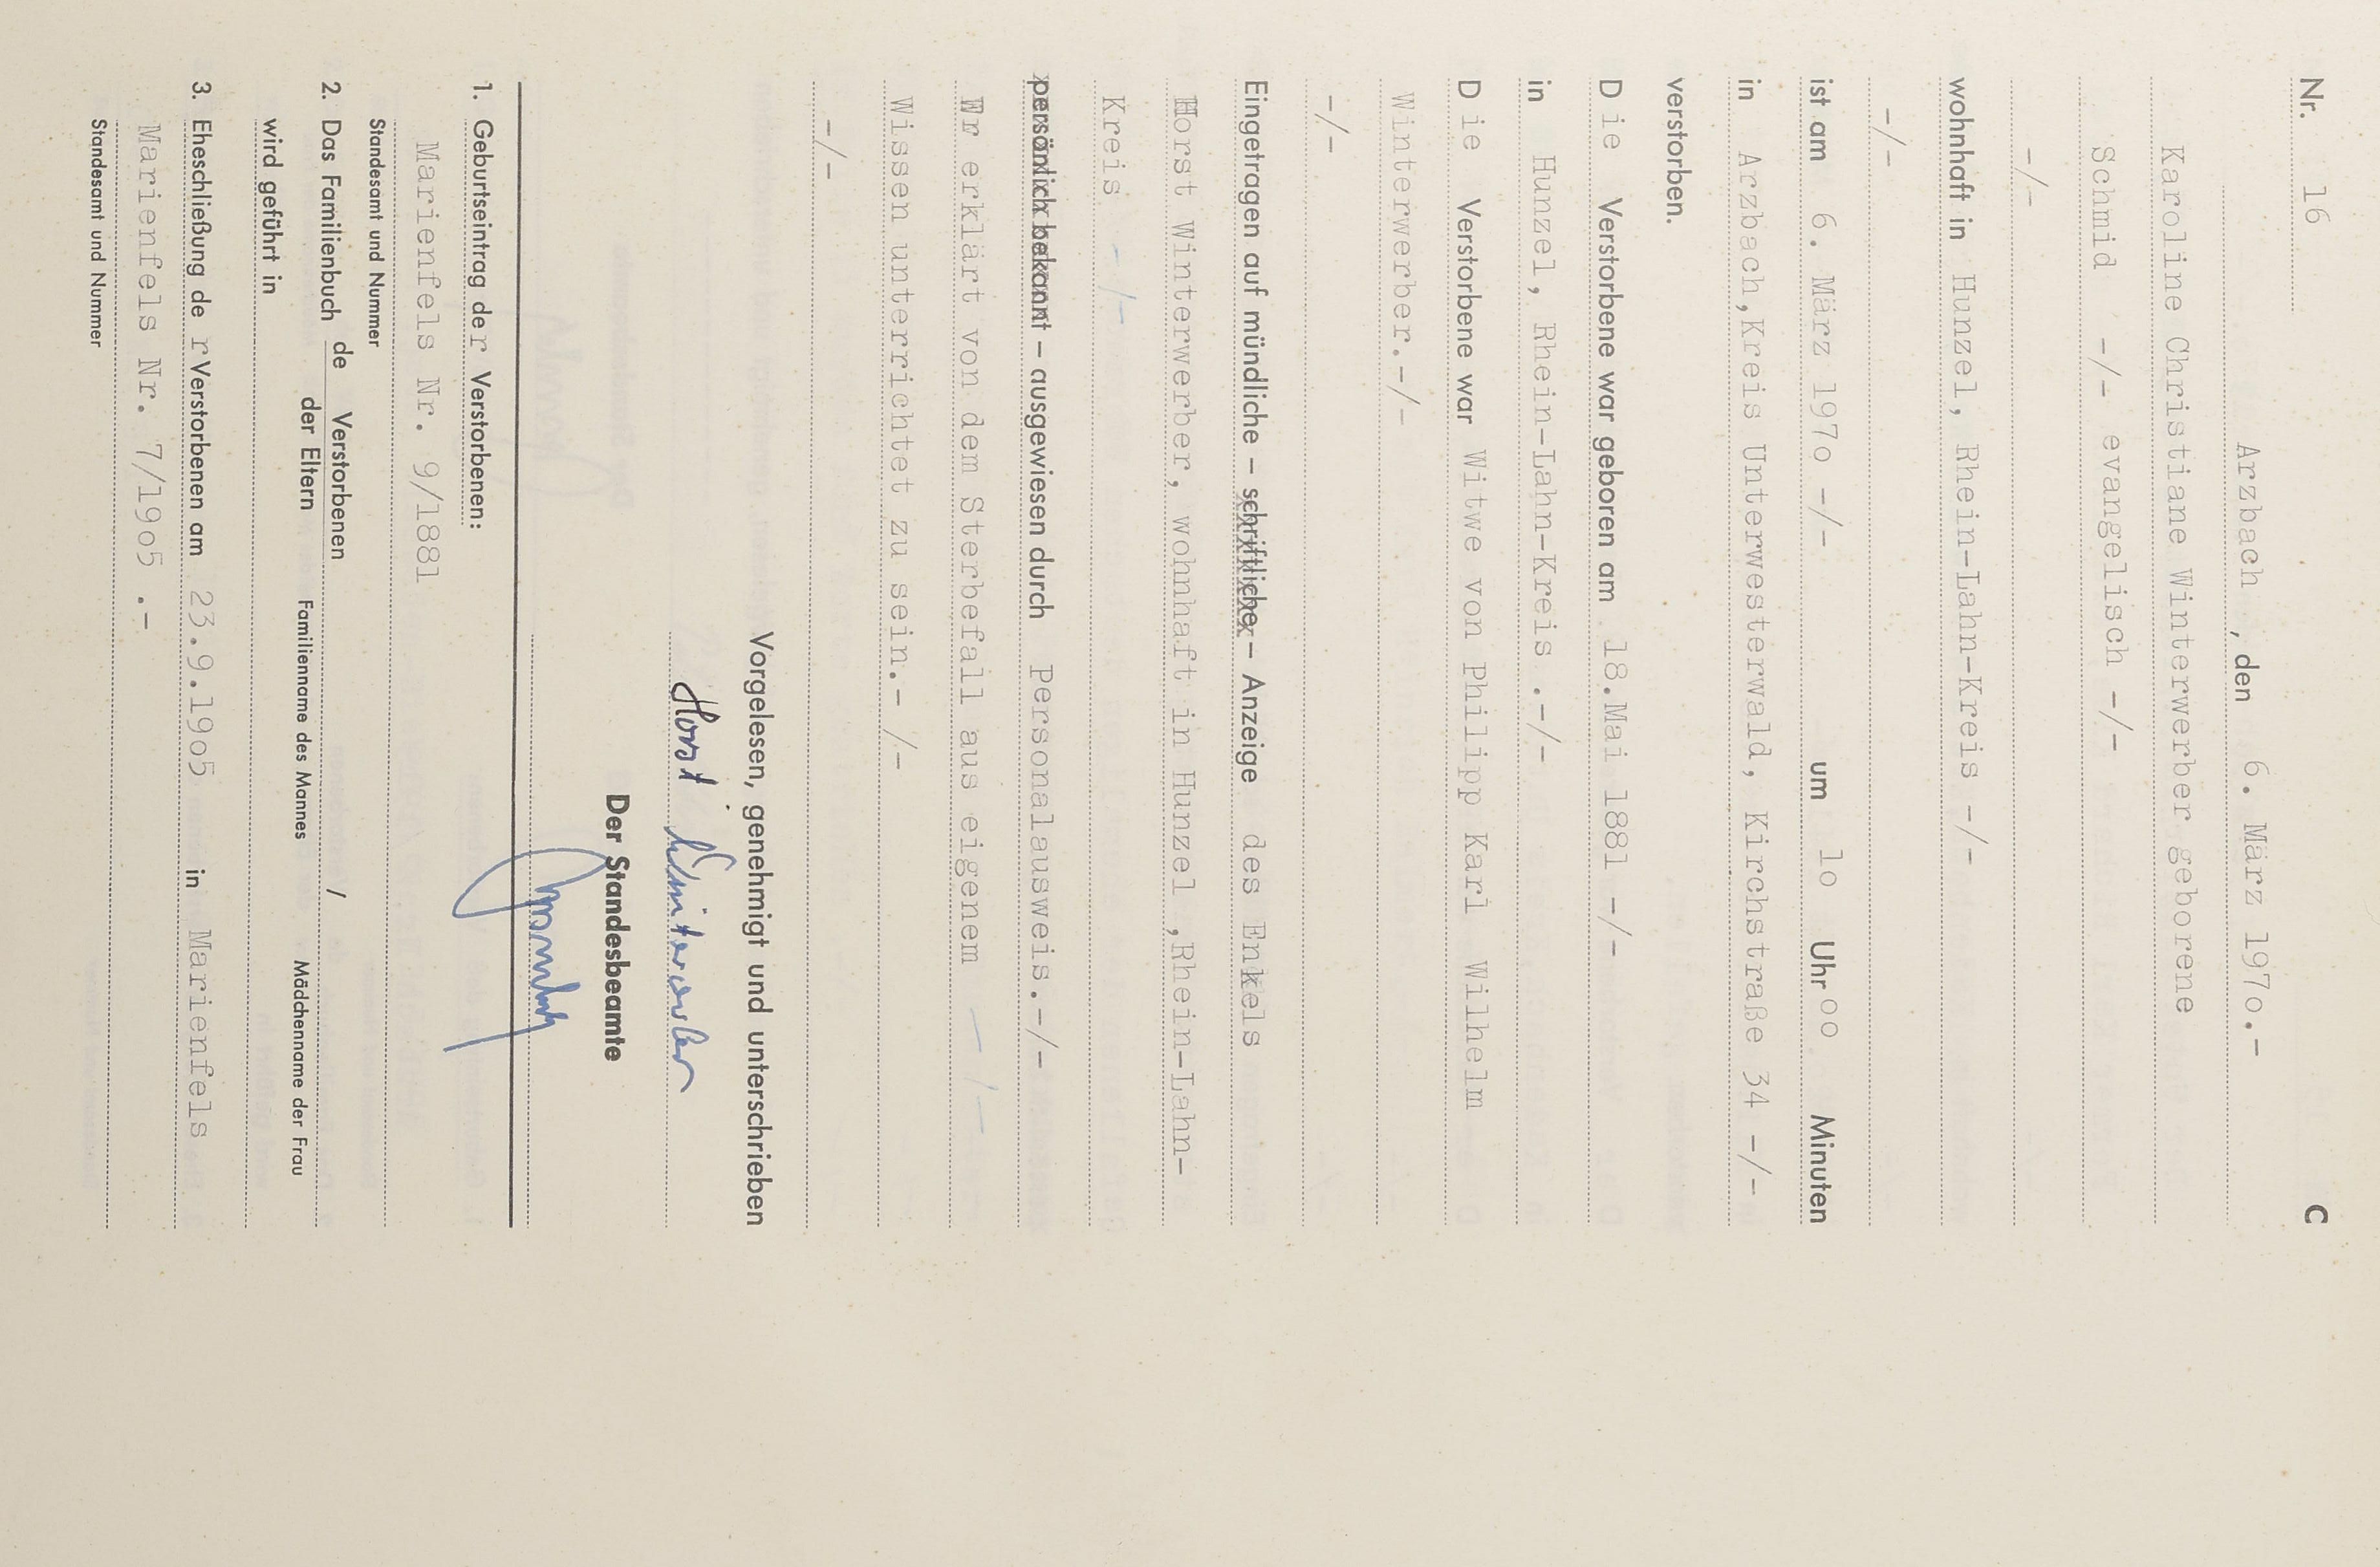 Nr. 16 C
Arzbach, den 6. März 197o.-
Karoline Christiane Winterwerber geborene
Schmid -/- evangelisch -/-
-/-
wohnhaft in Hunzel, Rhein-Lahn-Kreis -/-
-/-
ist am 6. März 197o -/- um 1o Uhr oo Minuten
in Arzbach,Kreis Unterwesterwald, Kirchstraße 34 -/-
verstorben.
Die Verstorbene war geboren am 18.Mai 1881 -/-
in Hunzel, Rhein-Lahn-Kreis .-/-
Die Verstorbene war Witwe von Philipp Karl Wilhelm
Winterwerber.-/-
-/-
Eingetragen auf mündliche – schriftliche – Anzeige des Enkels
Horst Winterwerber, wohnhaft in Hunzel ,Rhein-Lahn-
Kreis -/-
persönlich bekannt – ausgewiesen durch Personalausweis.-/-
Er erklärt von dem Sterbefall aus eigenem -/-
Wissen unterrichtet zu sein.- /-
-/-
Vorgelesen, genehmigt und unterschrieben
Horst Winterwerber
Der Standesbeamte
1. Geburtseintrag der Verstorbenen:
Marienfels Nr. 9/1881
Standesamt und Nummer
2. Das Familienbuch de Verstorbenen /
der Eltern Familienname des Mannes Mädchenname der Frau
wird geführt in
3. Eheschließung der Verstorbenen am 23.9.19o5 in Marienfels
Marienfels Nr. 7/19o5 .-
Standesamt und Nummer